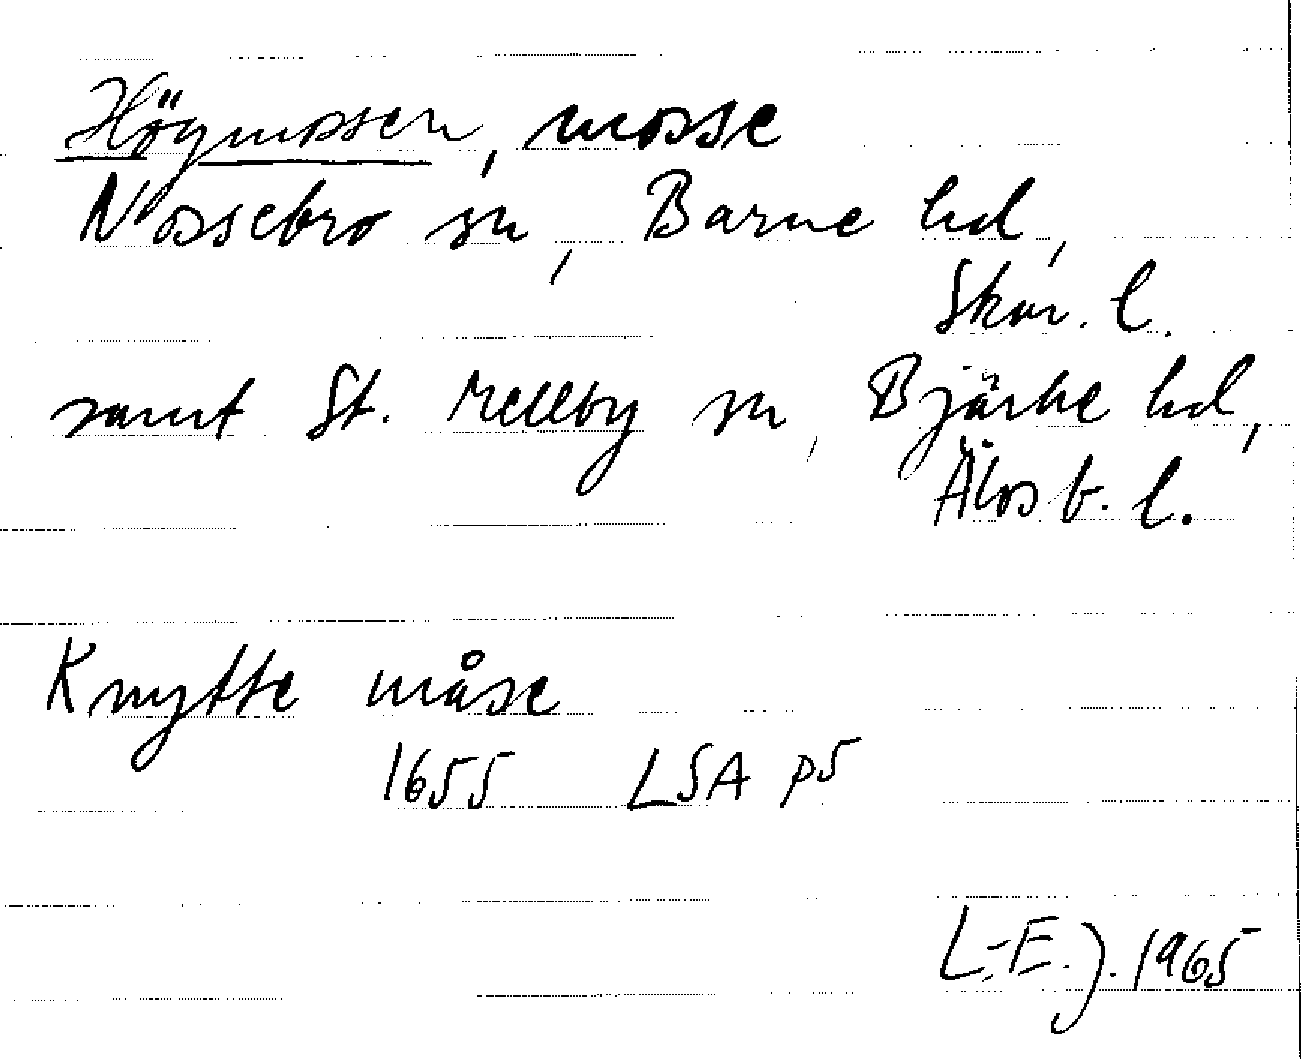 Högmossen, mosse
Nossebro sn, Barne hd,
Skar. l.
samt St. Mellby sn, Bjärke hd,
Älvsb. l.
Knytte måse
1655 LSA p5
L-E.J. 1965